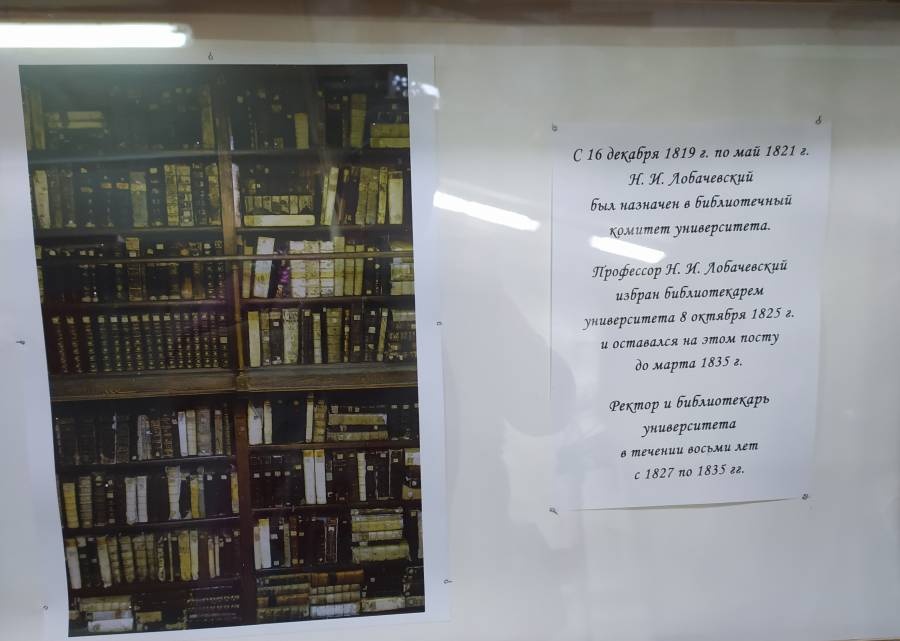 С 16 декабря 1819 г. по май 1821 г.
Н. И. Лобачевский
был назначен в библиотечный
комитет университета.
Профессор Н. И. Лобачевский
избран библиотекарем
университета 8 октября 1825 г.
и оставался на этом посту
до марта 1835 г.
Ректор и библиотекарь
университета
в течении восьми лет
с 1827 по 1835 гг.